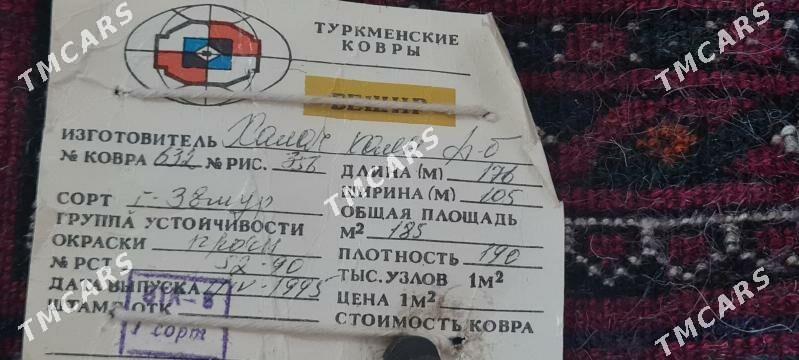 ТУРКМЕНСКИЕ
КОВРЫ
БЕШИР
ИЗГОТОВИТЕЛЬ Халач
№ КОВРА 632 № РИС. 356
ДЛИНА (М) 176
ШИРИНА (М) 105
СОРТ I-
ОБЩАЯ ПЛОЩАДЬ
М² 185
ГРУППА УСТОЙЧИВОСТИ
ОКРАСКИ
ПЛОТНОСТЬ 190
№ РСТ 52-90
ТЫС. УЗЛОВ 1М²
ДАТА ВЫПУСКА IV-1995
ЦЕНА 1М²
ШТАМП ОТК
СТОИМОСТЬ КОВРА
1 сорт
TMCARS
TMCARS
TMCARS
TMCARS
TMCARS
TMCARS
TMCARS